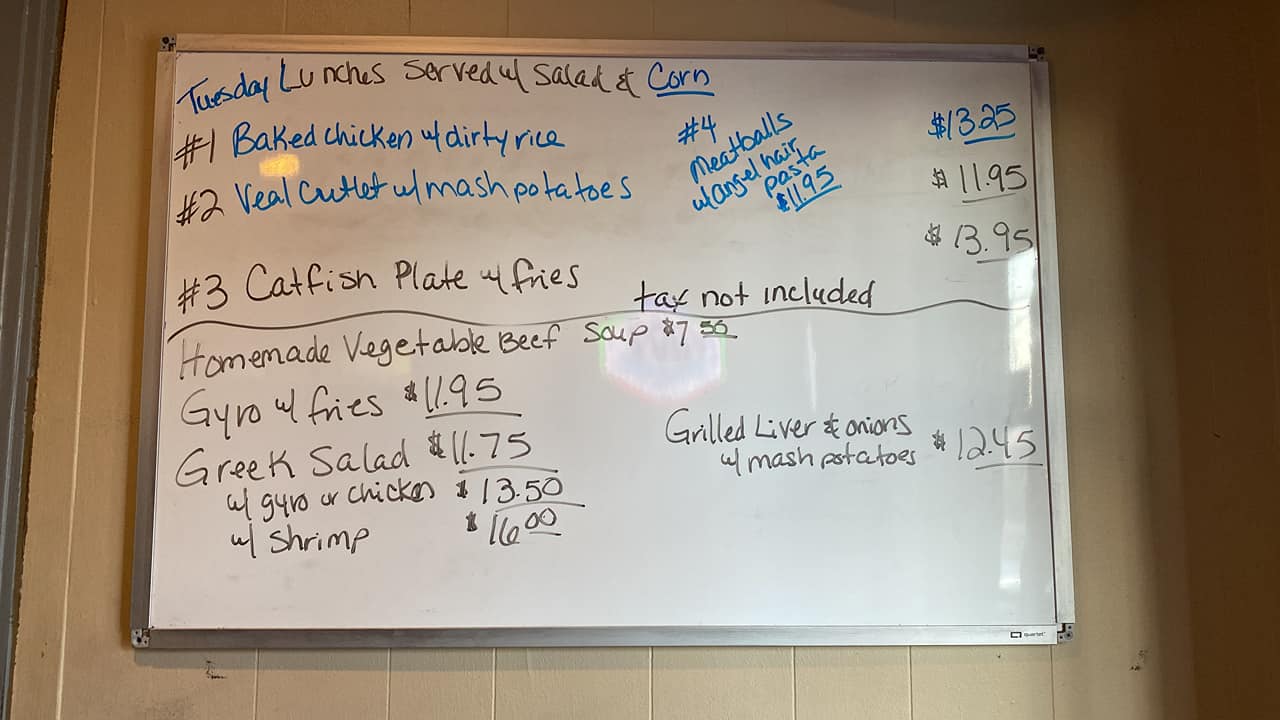 Tuesday Lunches Served w/ Salad & Corn
#1 Baked chicken w/ dirty rice $13.25
#2 Veal Cutlet w/ mash potatoes $11.95
#4
meatballs
w/ angel hair
pasta
$11.95
#3 Catfish Plate w/ fries $13.95
tax not included
Homemade Vegetable Beef Soup $7.50
Gyro w/ fries $11.95
Greek Salad $11.75
w/ gyro or chicken $13.50
w/ shrimp $16.00
Grilled Liver & onions
w/ mash potatoes $12.45
quartet